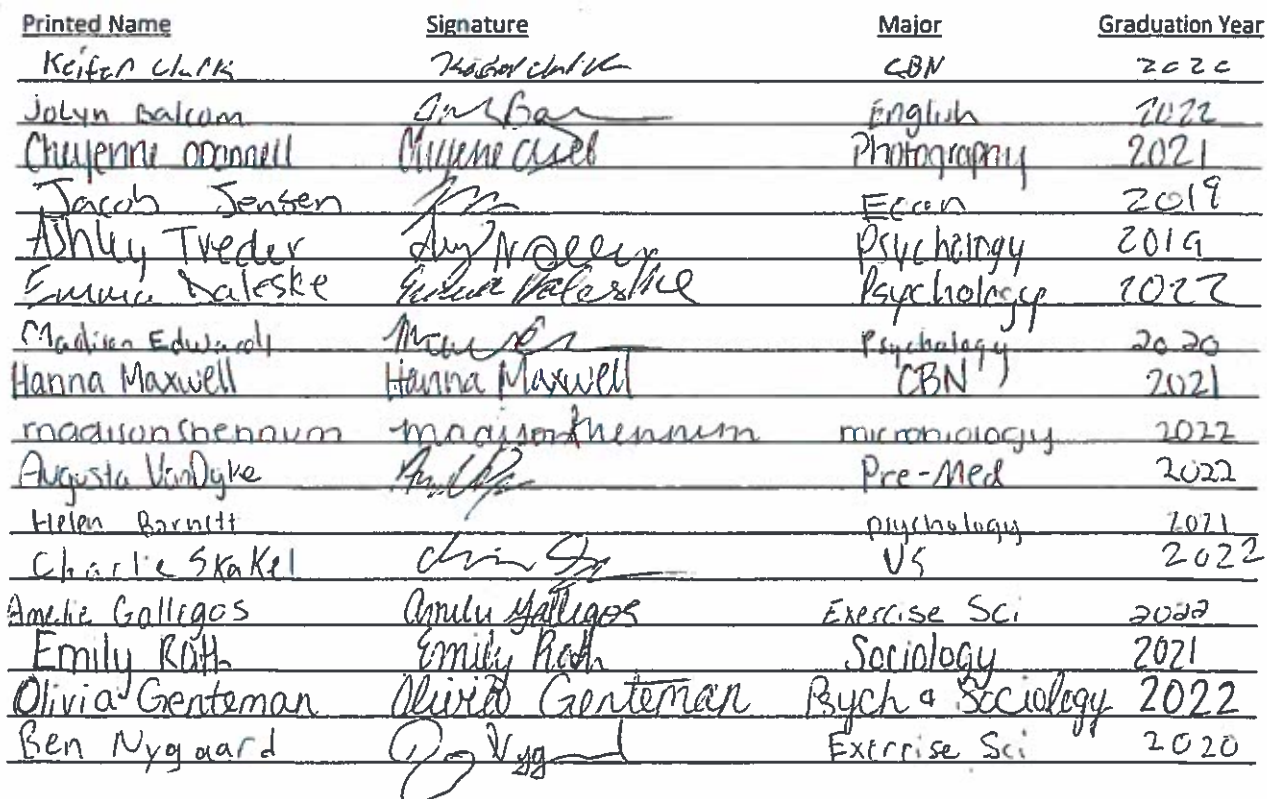 Printed Name Signature Major Graduation Year
Keifer Clark CBN 2020
Jolyn Balcom English 2022
Cheyenne ODonnell Photography 2021
Jacob Jensen Econ 2019
Ashley Treder Psychology 2019
Emma Daleske Emma Daleske Psychology 2022
Madison Edwards Psychology 2020
Hanna Maxwell Hanna Maxwell CBN 2021
madison shennum madison shennum microbiology 2022
Augusta VanDyke Pre-Med 2022
Helen Barnett psychology 2021
Charlie Skakel VS 2022
Amelie Gallegos Amelie Gallegos Exercise Sci 2022
Emily Rath Emily Rath Sociology 2021
Olivia Genteman Olivia Genteman Psych & Sociology 2022
Ben Nygaard Exercise Sci 2020